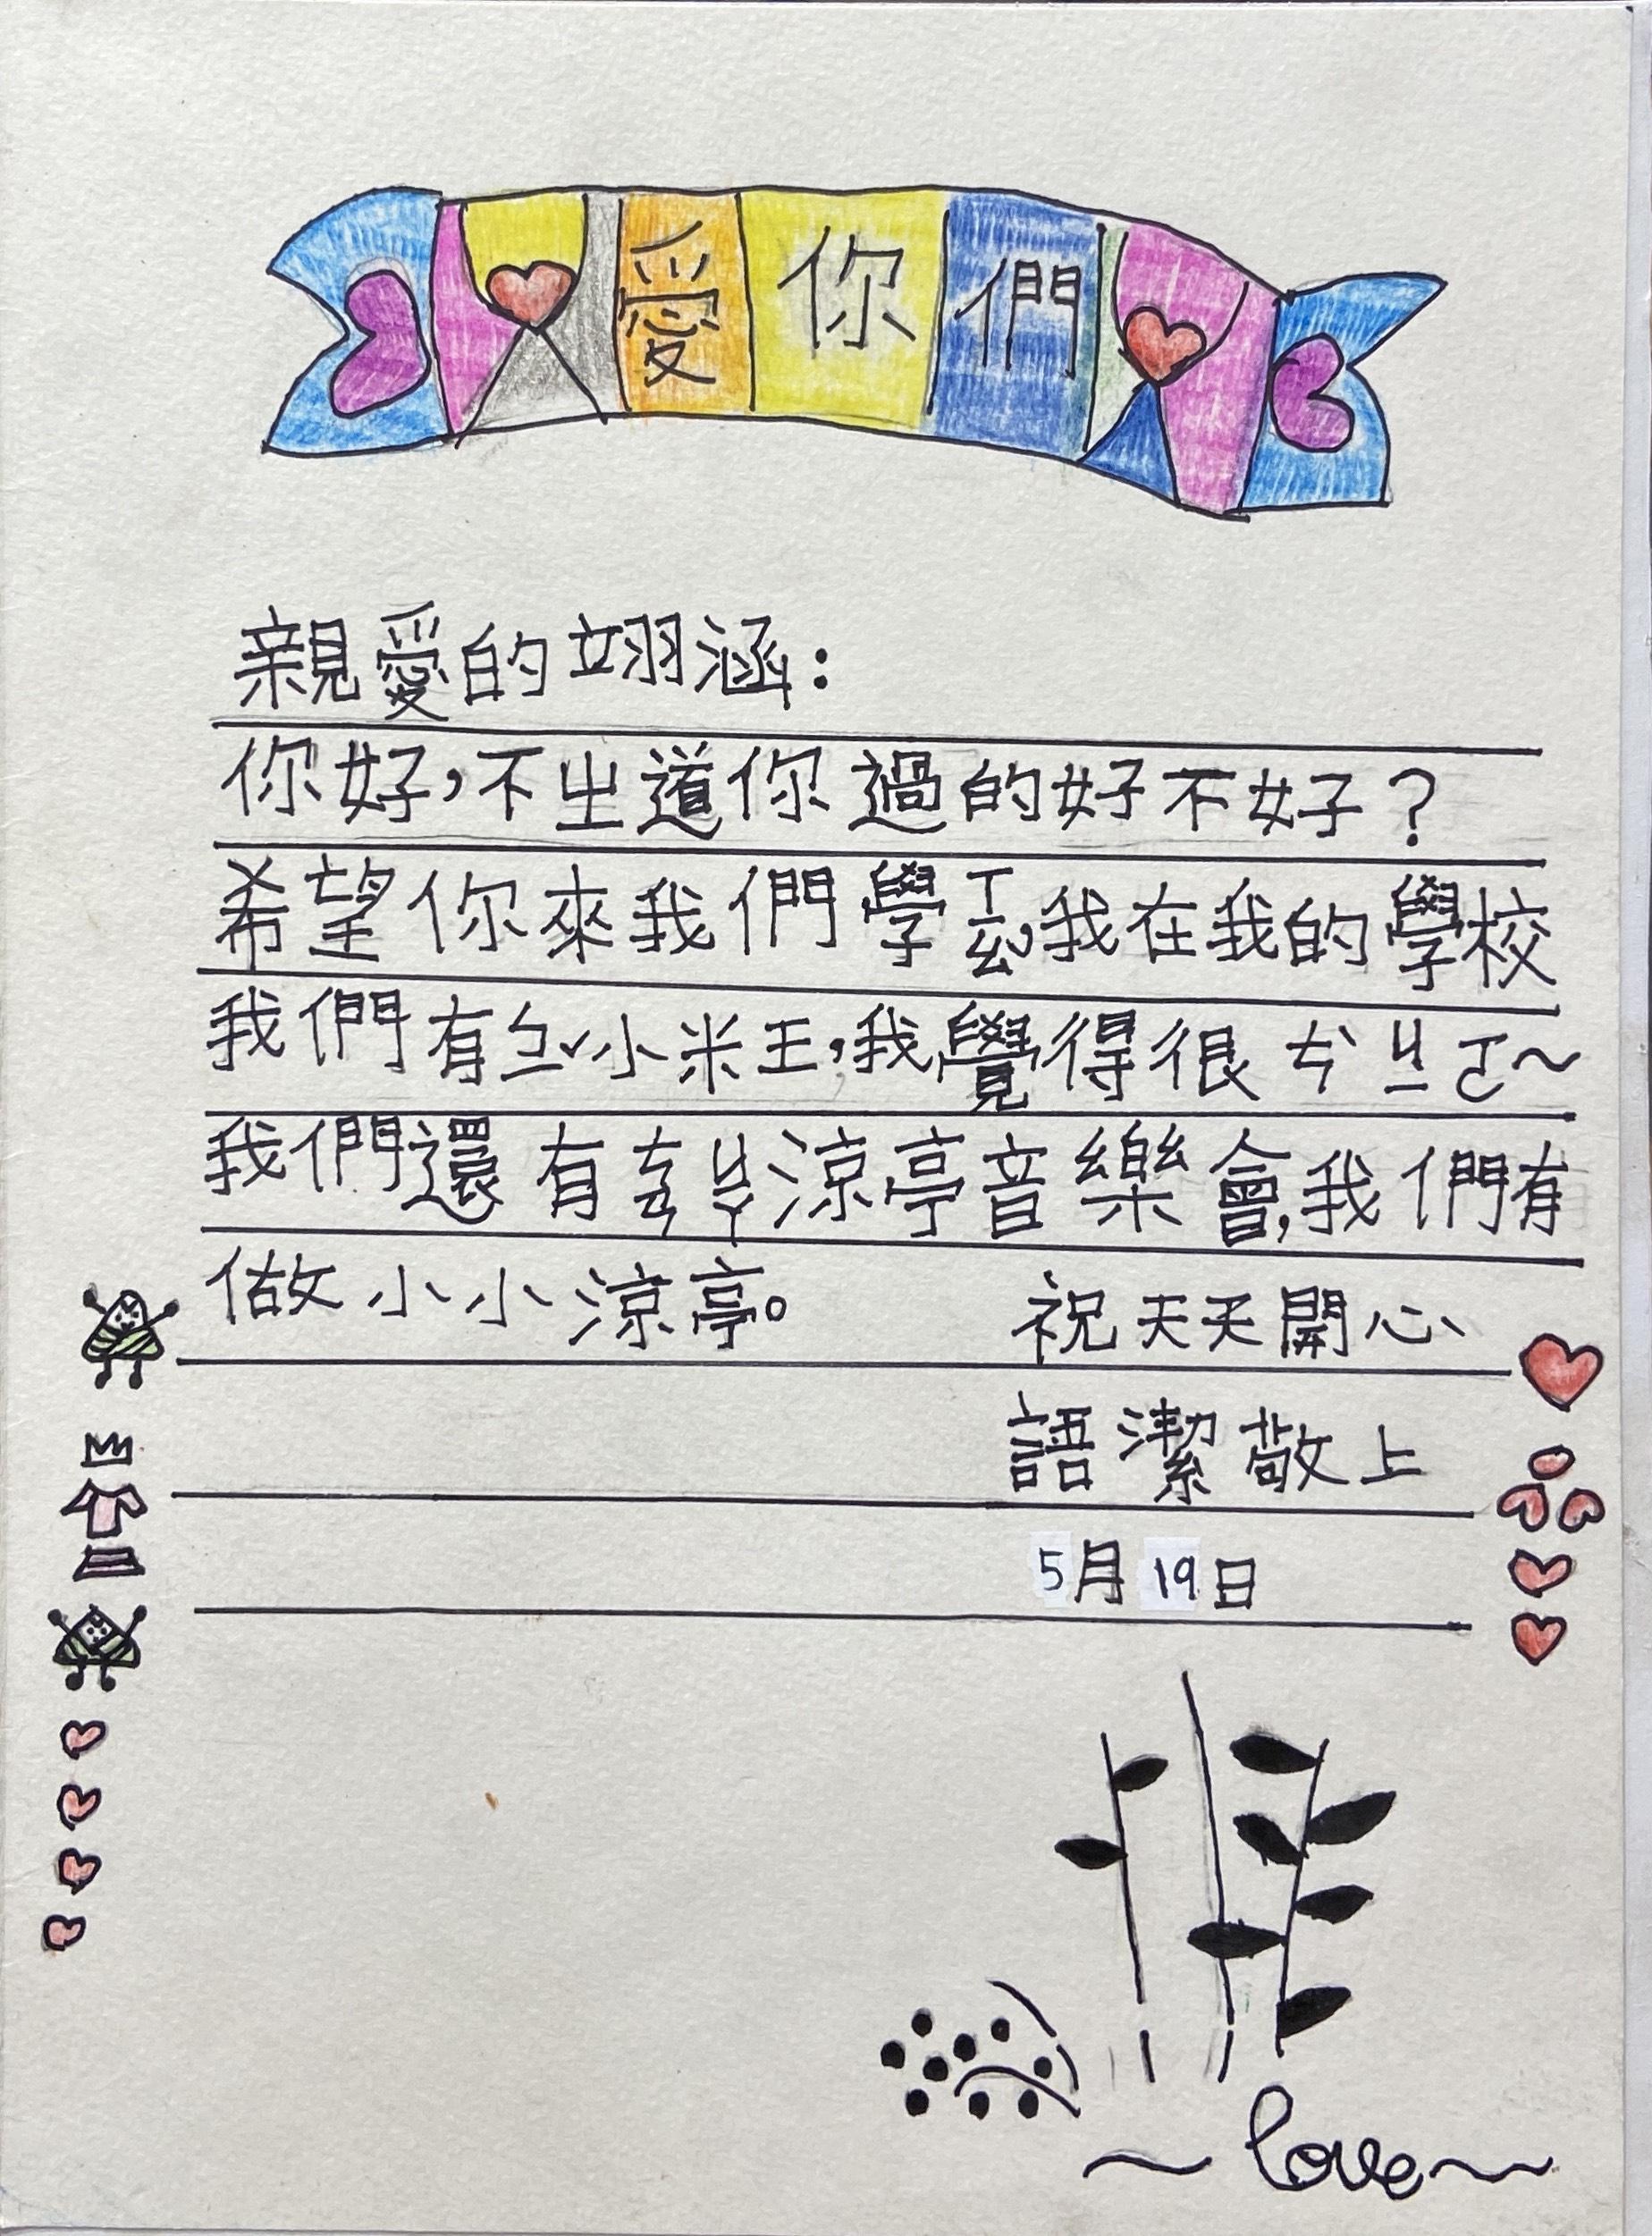 愛你們
親愛的翊涵:
你好,不出道你過的好不好?
希望你來我們學ㄒㄧㄠˋ,我在我的學校
我們有ㄅㄧˇ小米王,我覺得很ㄘˋㄐㄧㄛ~
我們還有涼亭音樂會,我們有
做小小涼亭。 祝天天開心
語潔敬上
5月19日
~love~